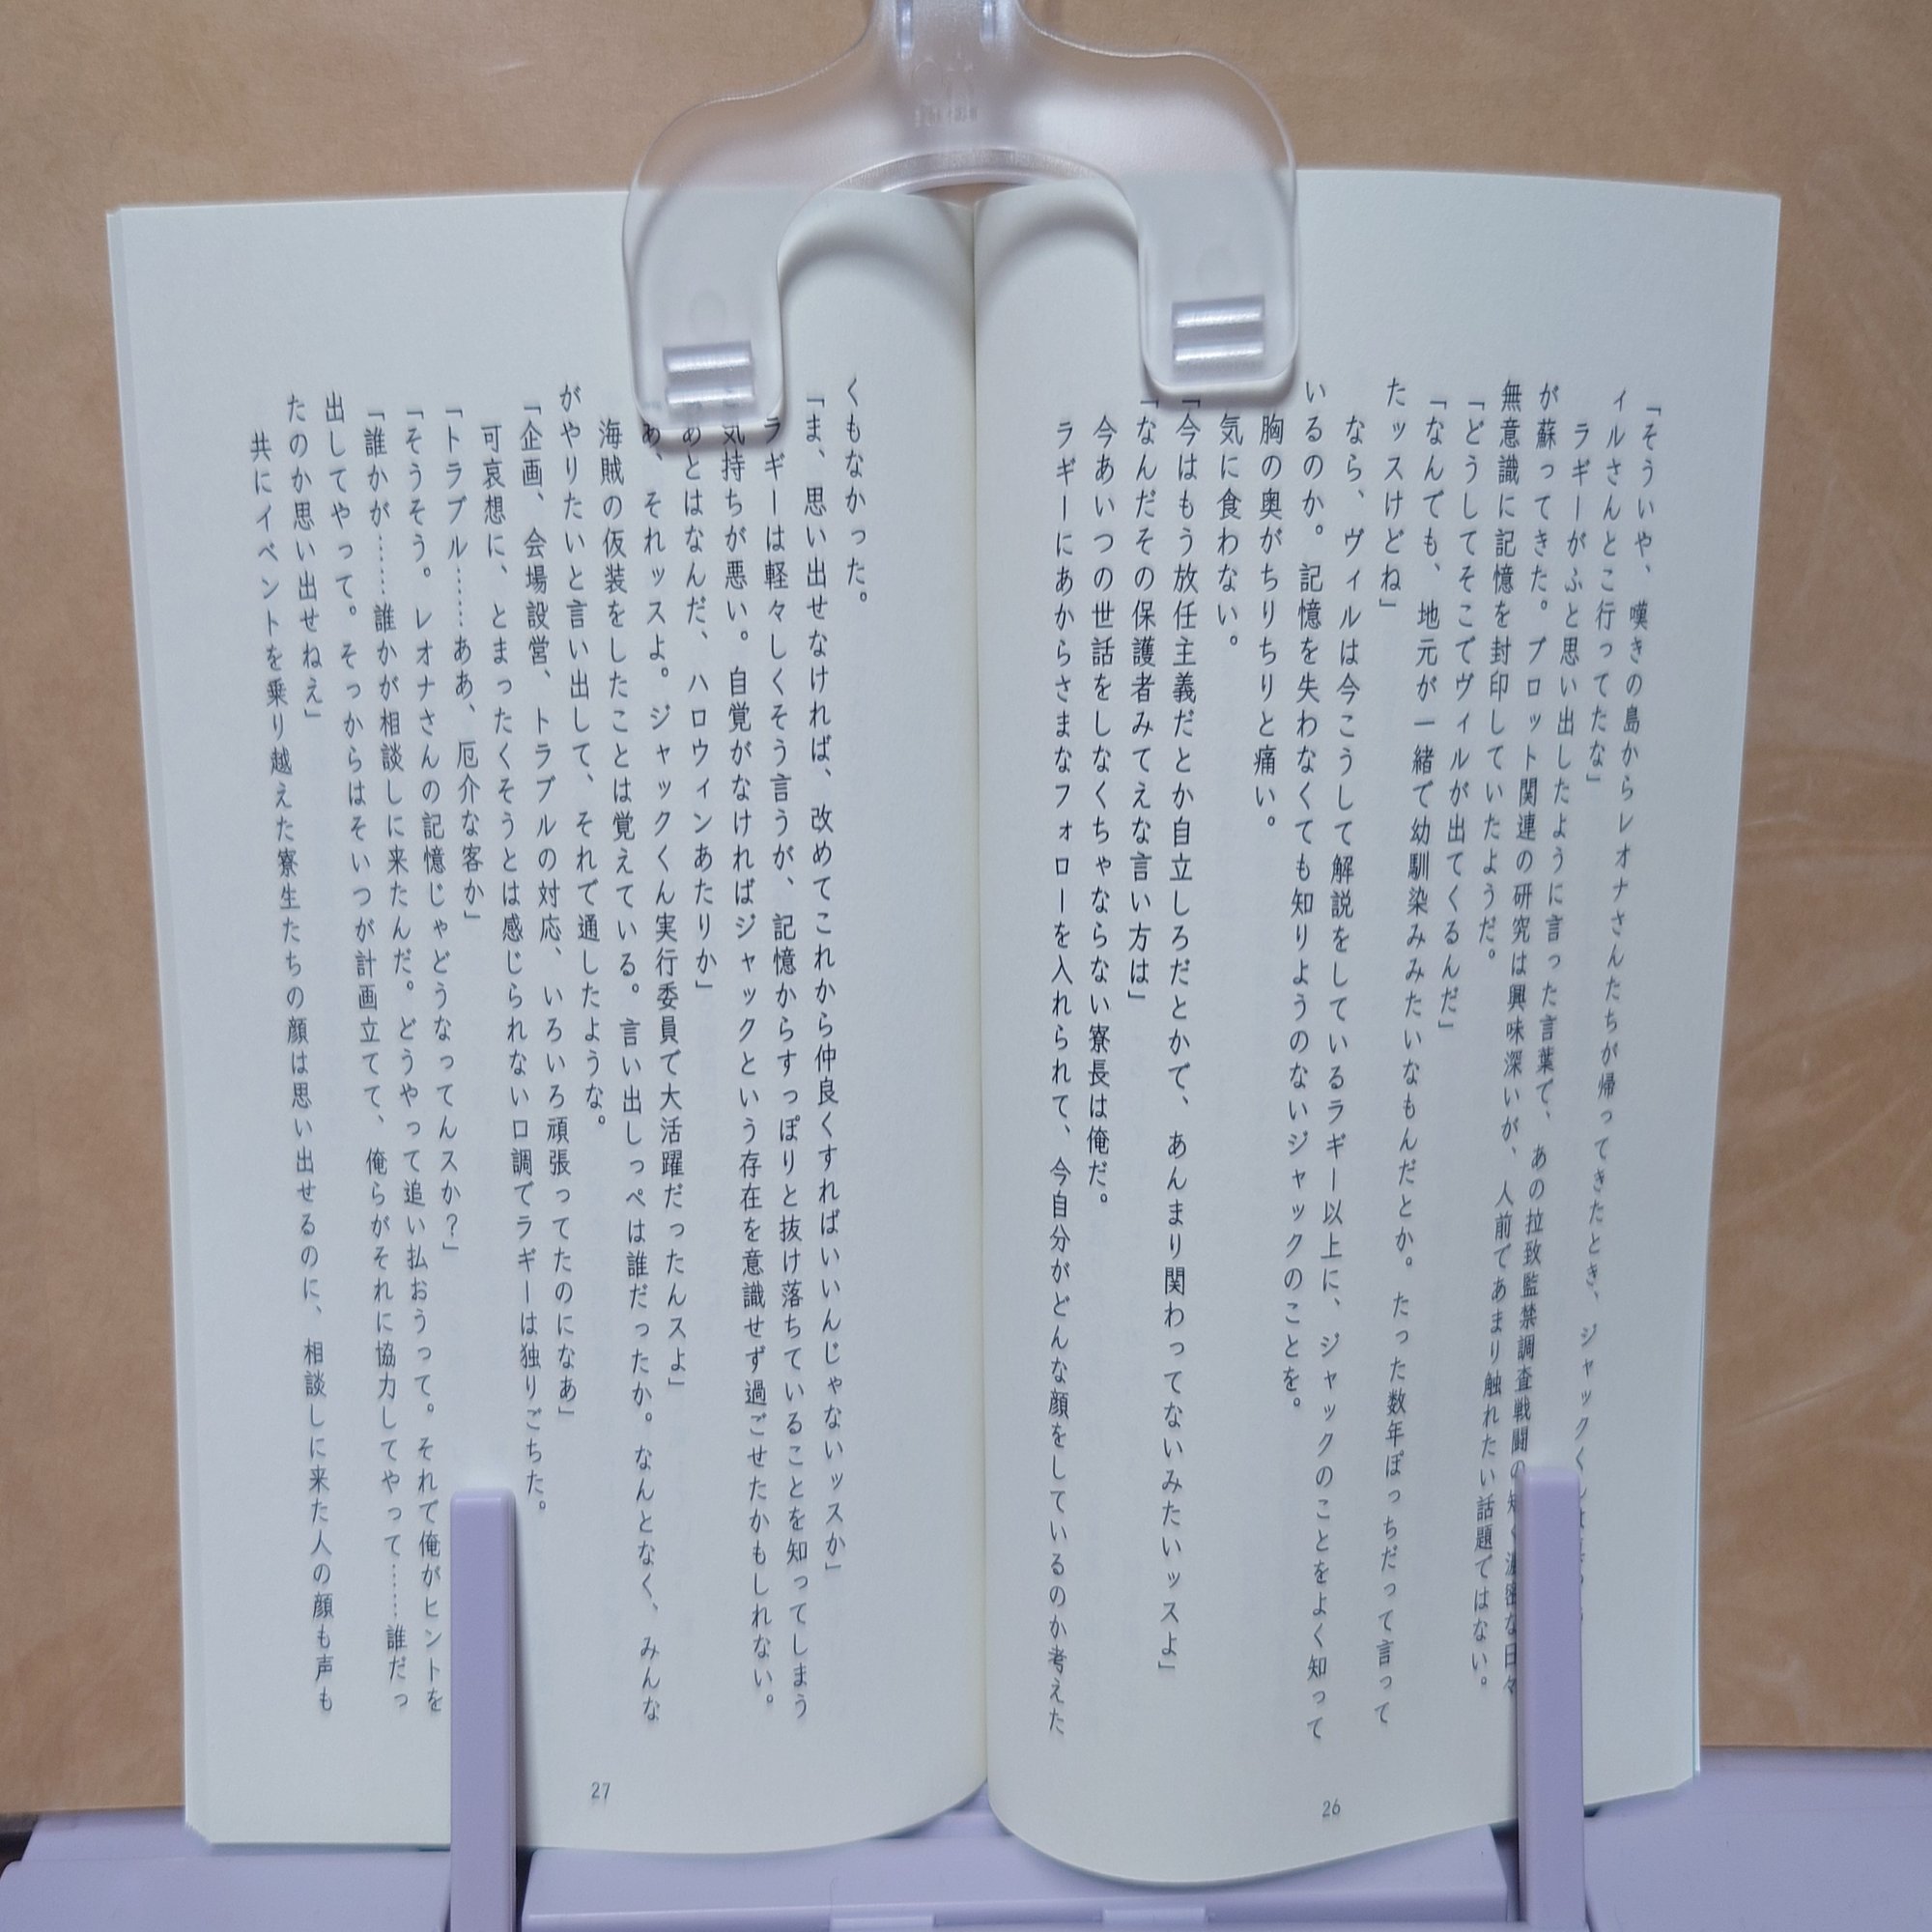 「そういや、嘆きの島からレオナさんたちが帰ってきたとき、ジャックく
ィルさんとこ行ってたな」
ラギーがふと思い出したように言った言葉で、あの拉致監禁調査戦闘の
が蘇ってきた。ブロット関連の研究は興味深いが、人前であまり触れたい話題ではない。
無意識に記憶を封印していたようだ。
「どうしてそこでヴィルが出てくるんだ」
「なんでも、地元が一緒で幼馴染みみたいなもんだとか。たった数年ぽっちだって言って
たッスけどね」
なら、ヴィルは今こうして解説をしているラギー以上に、ジャックのことをよく知って
いるのか。記憶を失わなくても知りようのないジャックのことを。
胸の奥がちりちりと痛い。
気に食わない。
「今はもう放任主義だとか自立しろだとかで、あんまり関わってないみたいッスよ」
「なんだその保護者みてえな言い方は」
今あいつの世話をしなくちゃならない寮長は俺だ。
ラギーにあからさまなフォローを入れられて、今自分がどんな顔をしているのか考えた
26
くもなかった。
「ま、思い出せなければ、改めてこれから仲良くすればいいんじゃないッスか」
ラギーは軽々しくそう言うが、記憶からすっぽりと抜け落ちていることを知ってしまう
気持ちが悪い。自覚がなければジャックという存在を意識せず過ごせたかもしれない。
あとはなんだ、ハロウィンあたりか」
あ、それッスよ。ジャックくん実行委員で大活躍だったんスよ」
海賊の仮装をしたことは覚えている。言い出しっぺは誰だったか。なんとなく、みんな
がやりたいと言い出して、それで通したような。
「企画、会場設営、トラブルの対応、いろいろ頑張ってたのになあ」
可哀想に、とまったくそうとは感じられない口調でラギーは独りごちた。
「トラブル……ああ、厄介な客か」
「そうそう。レオナさんの記憶じゃどうなってんスか？」
「誰かが……誰かが相談しに来たんだ。どうやって追い払おうって。それで俺がヒントを
出してやって。そっからはそいつが計画立てて、俺らがそれに協力してやって……誰だっ
たのか思い出せねえ」
共にイベントを乗り越えた寮生たちの顔は思い出せるのに、相談しに来た人の顔も声も
27